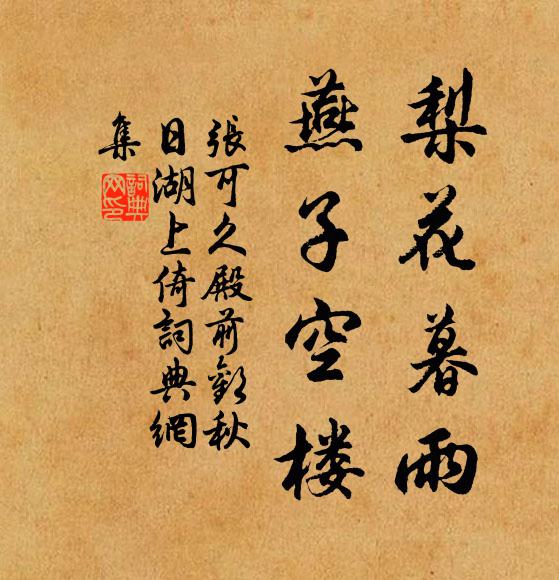 梨花暮雨
燕子空楼
張可久殿前歡秋
日湖上倚詞典網
集
詞典
网印